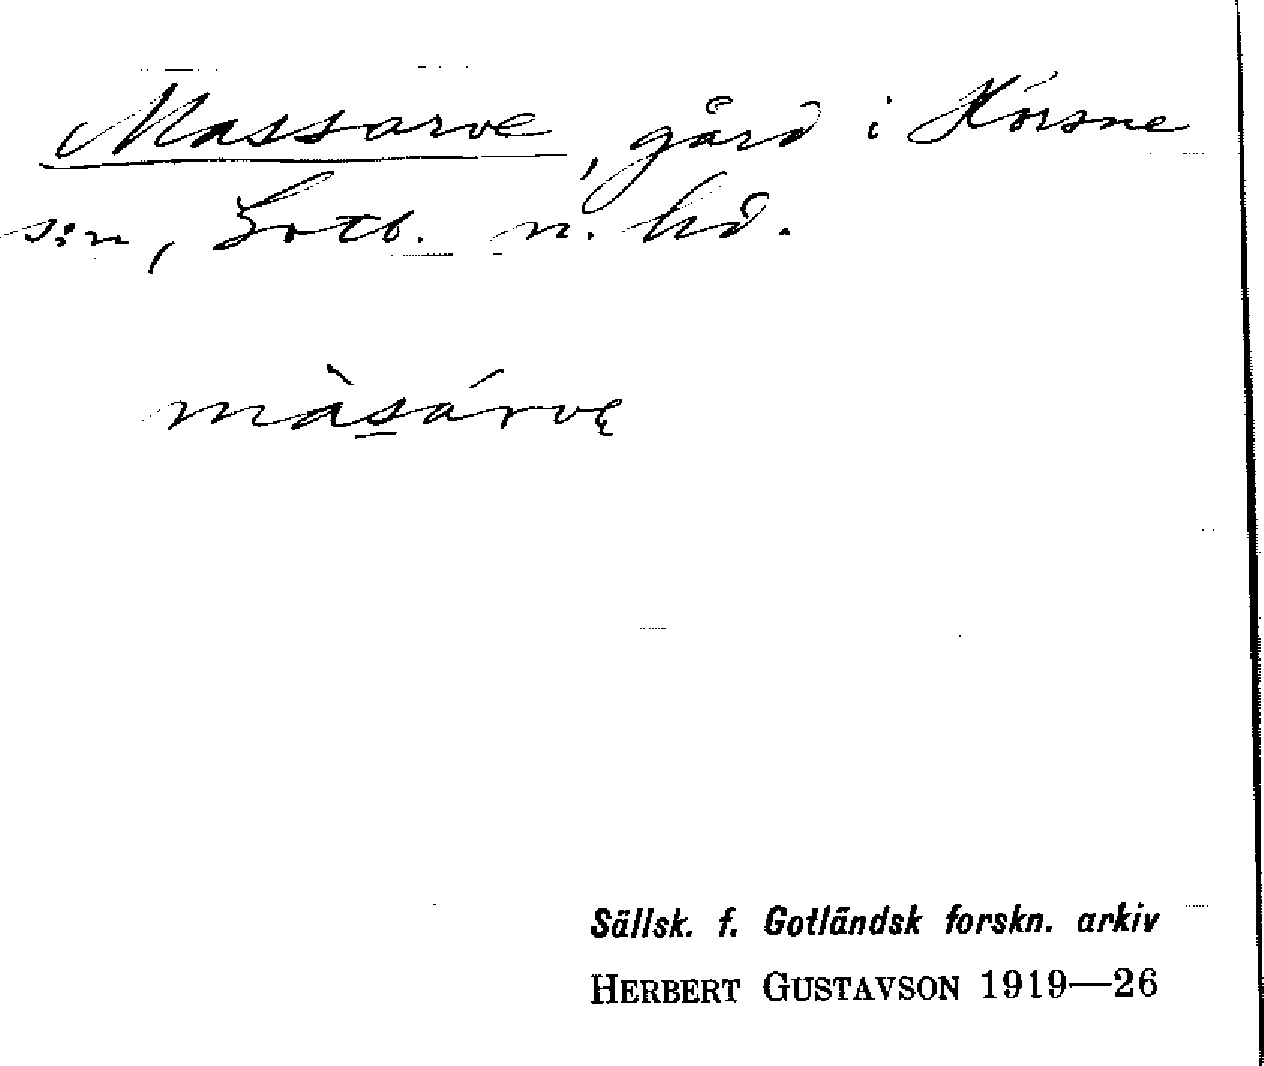 Massarve, gård i Hörsne
s:n, Gotl. n. hd.
màs̲árvę
Sällsk. f. Gotländsk forskn. arkiv
HERBERT GUSTAVSON 1919—26